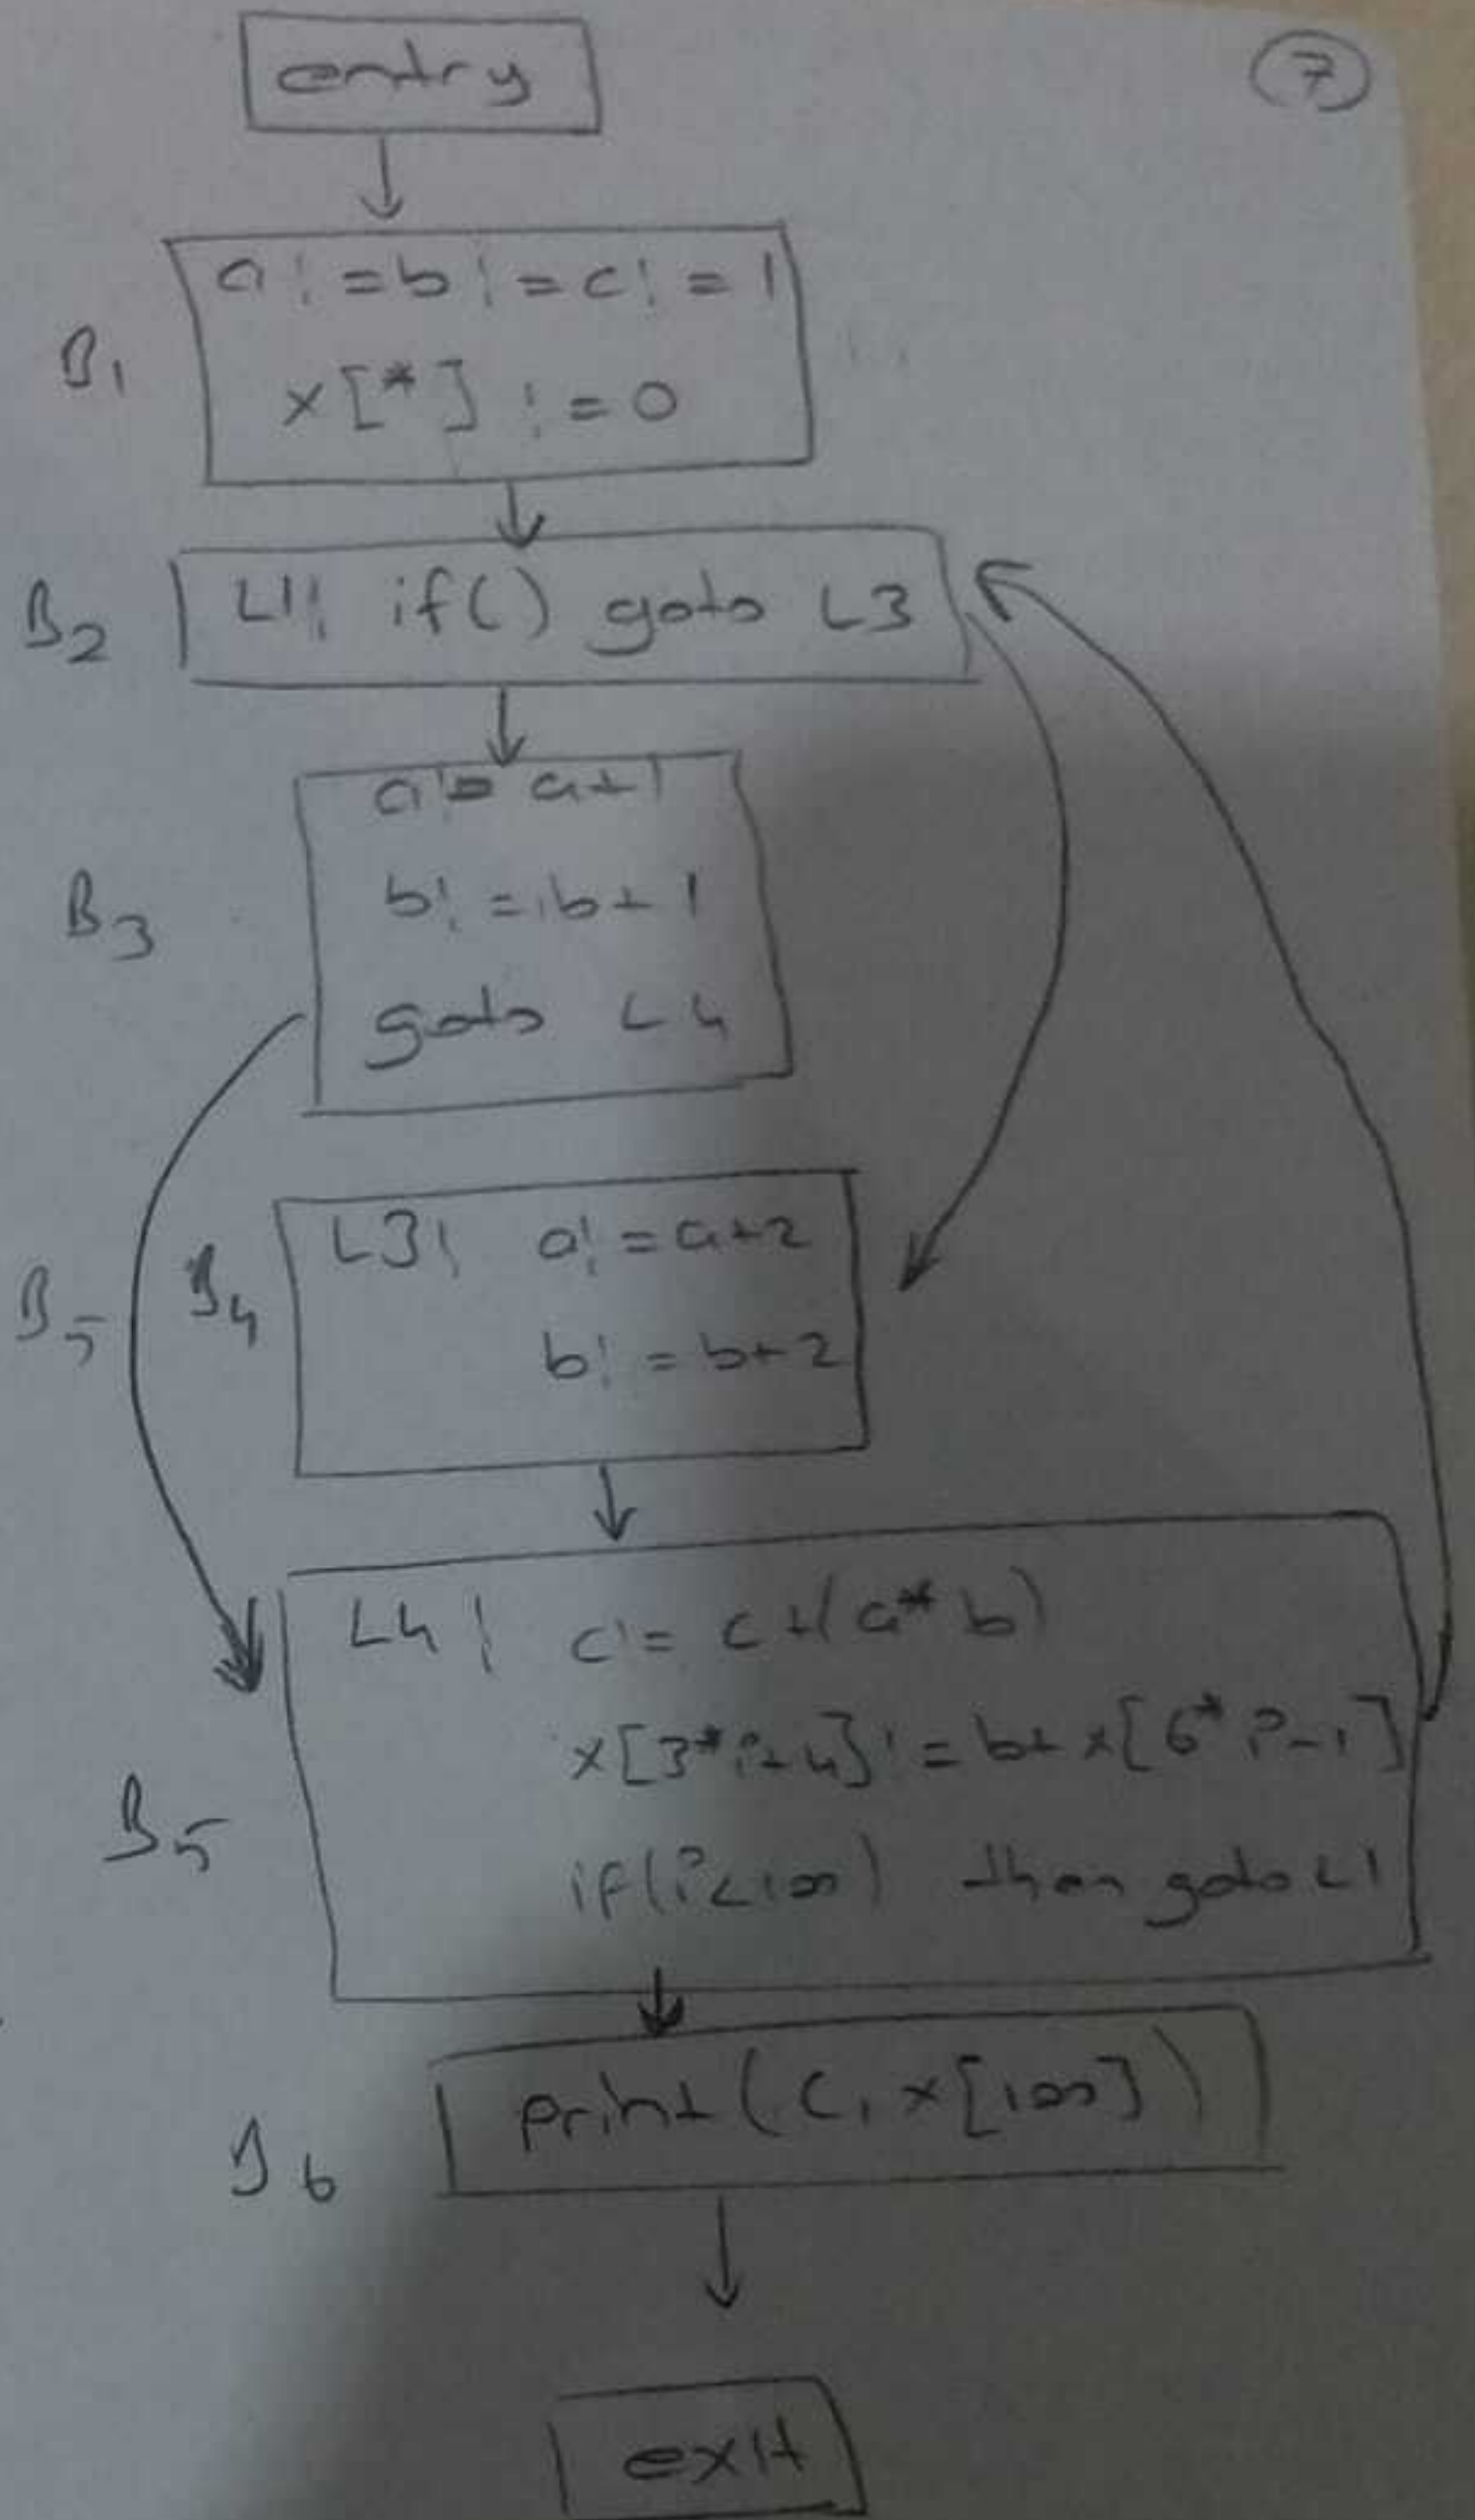 7
entry
B1
a:=b:=c:=1
x[*] := 0
B2
L1: if() goto L3
B3
a:= a+1
b:= b+1
goto L4
B5
B4
L3: a:= a+2
b:= b+2
B5
L4: c:= c+(a*b)
x[3*i+4] := b+ x[6*i-1]
if(i<100) then goto L1
B6
print(c, x[100])
exit